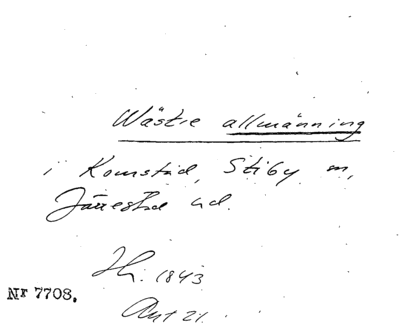 Wästre allmänning
i Komstad, Stiby m,
Järrestad hd.
Hh. 1843
Nr 7708.
Ant 21.